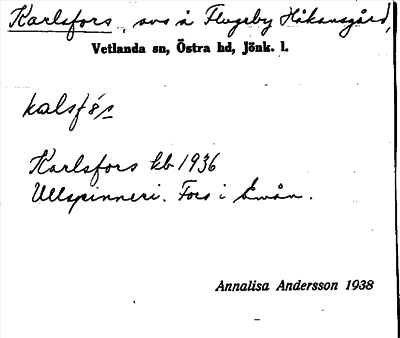 Karlsfors, avs å Flugeby Håkansgård,
Vetlanda sn, Östra hd, Jönk. l.
Karlsfors kb 1936
Ullspinneri. Fors i Emån.
Annalisa Andersson 1938